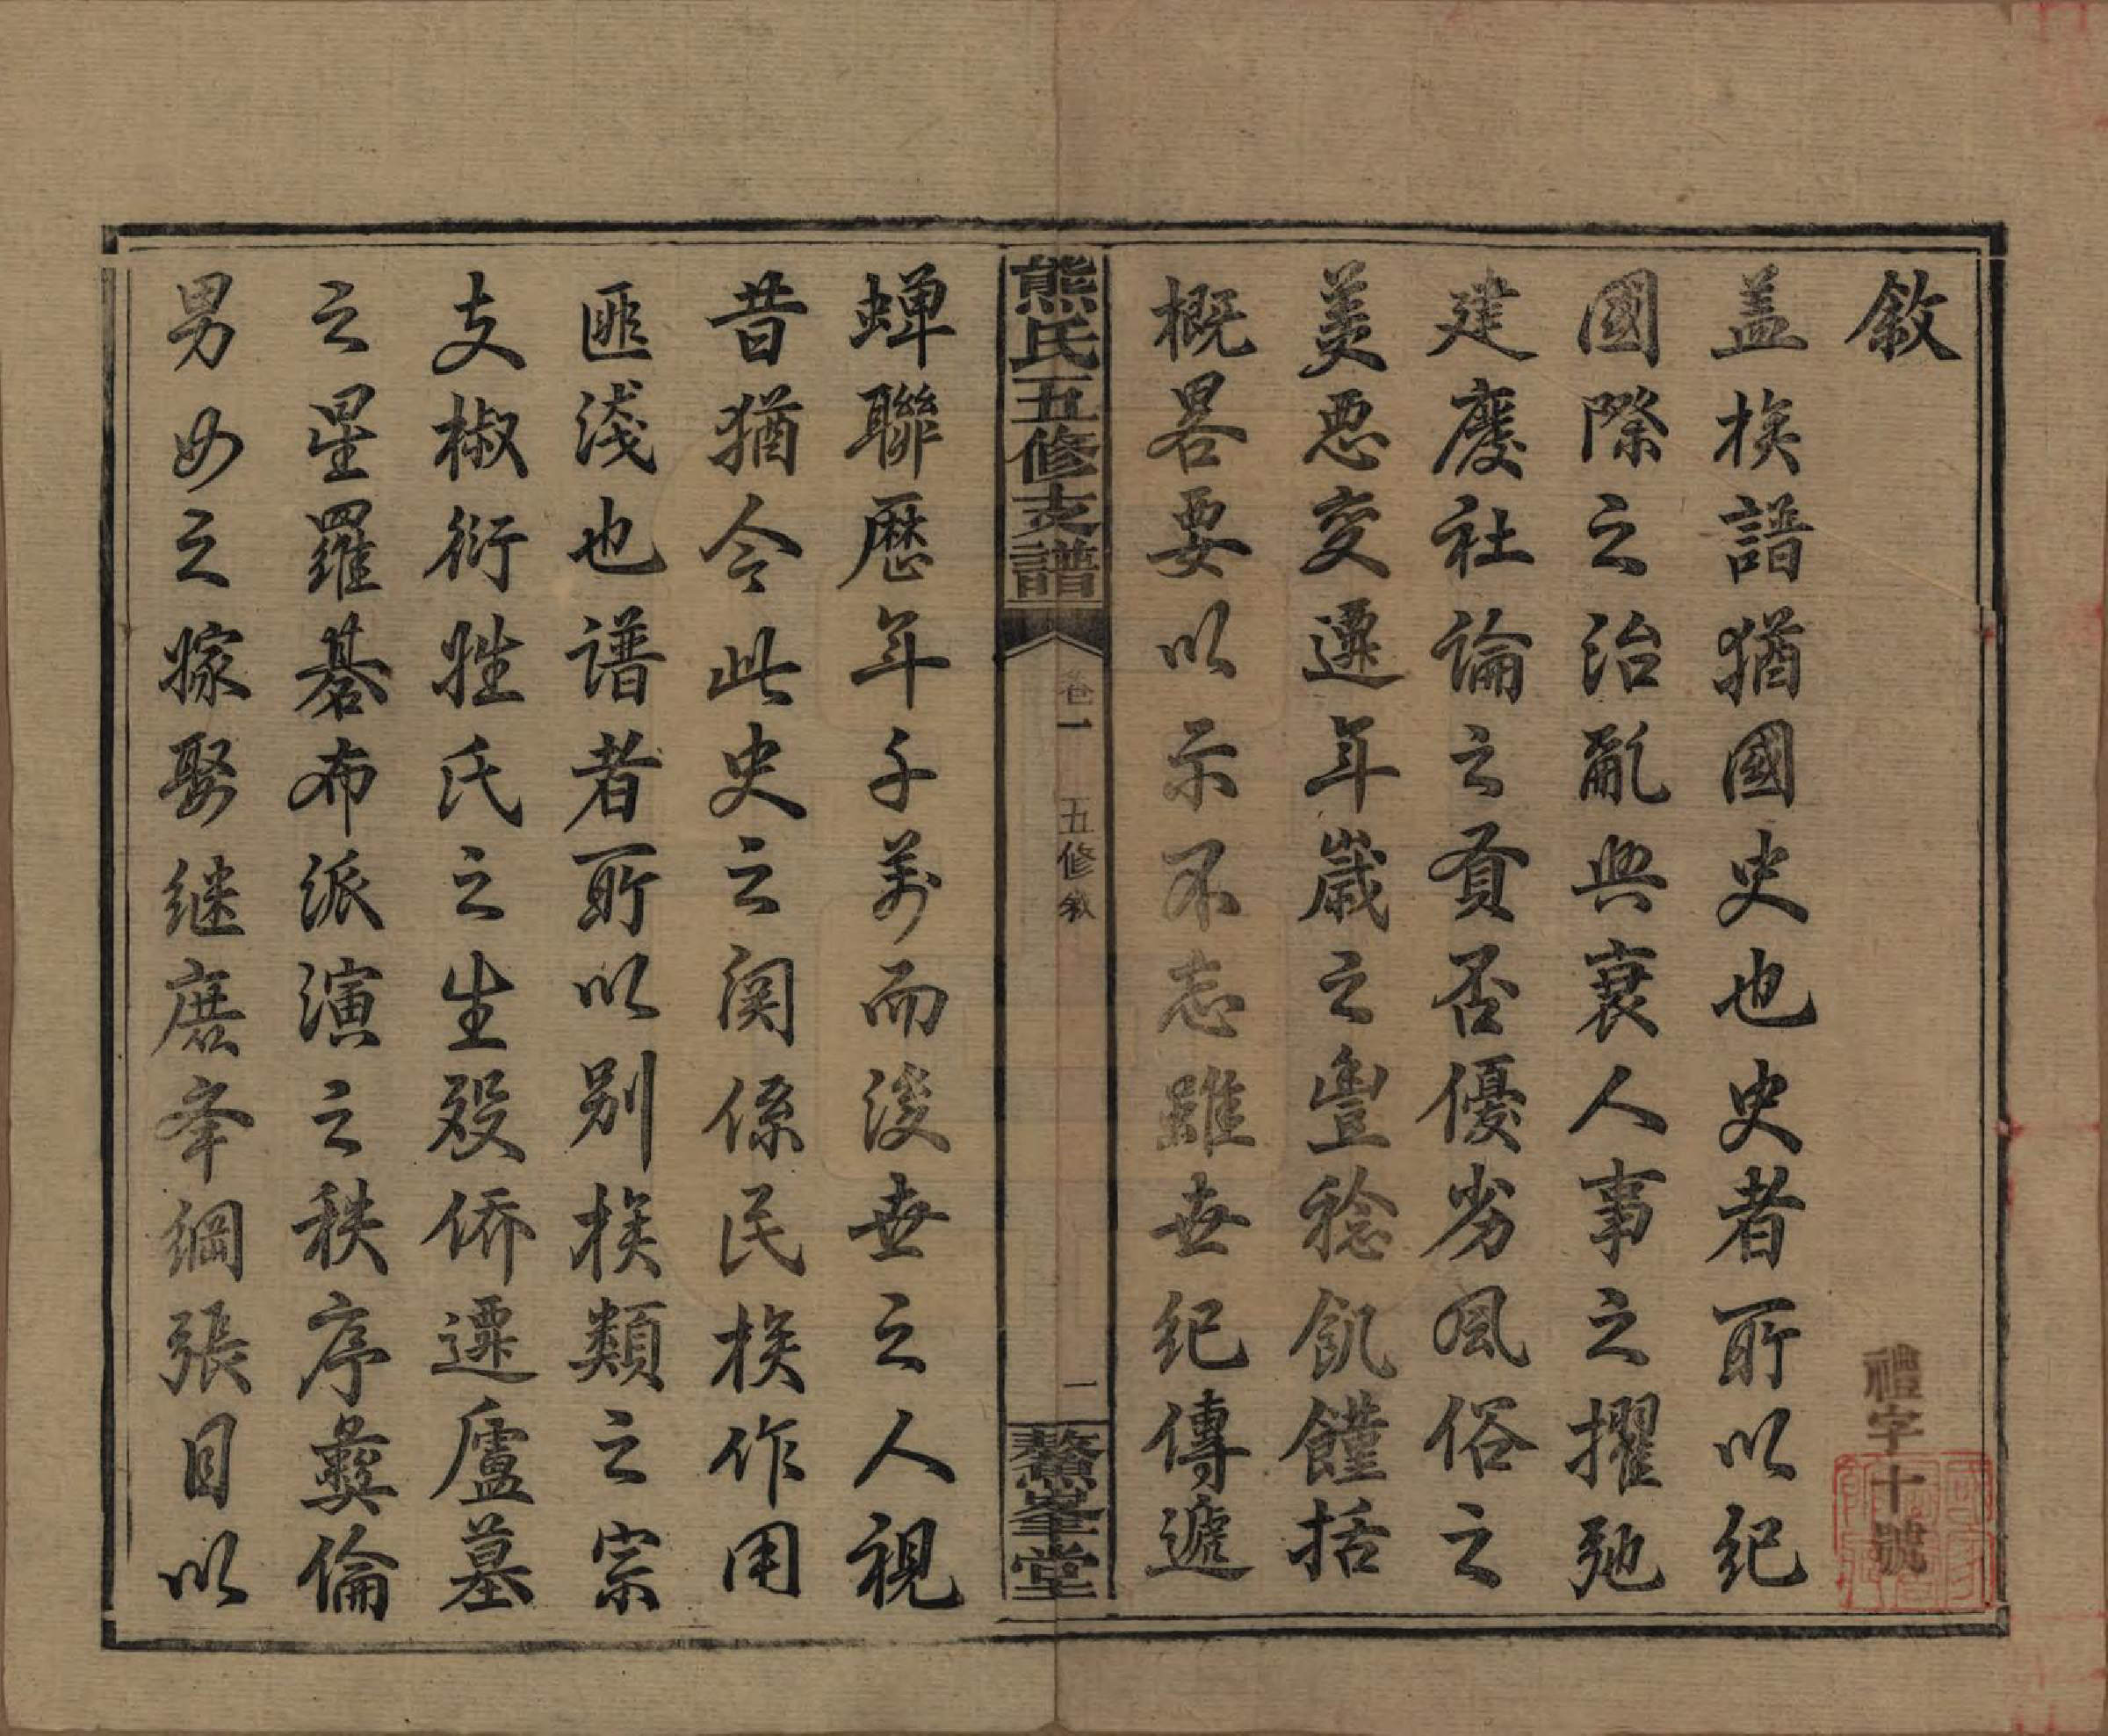 敘
禮字十號
盖族譜猶國史也史者所以紀
國際之治亂興衰人事之擢弛
建廢社論之貢否優劣風俗之
美惡变遷年歲之豊稔飢饉括
概畧要以示不忘雖世紀傳遞
熊氏五修支譜
卷一
五修敘
一
鰲峯堂
蝉聯歷年千萬而後世之人視
昔猶今此史之関係民族作用
匪淺也譜者所以别族類之宗
支椒衍甡氏之生殁侨遷廬墓
之星羅碁布派演之秩序彝倫
男女之嫁娶継庶举綱張目以